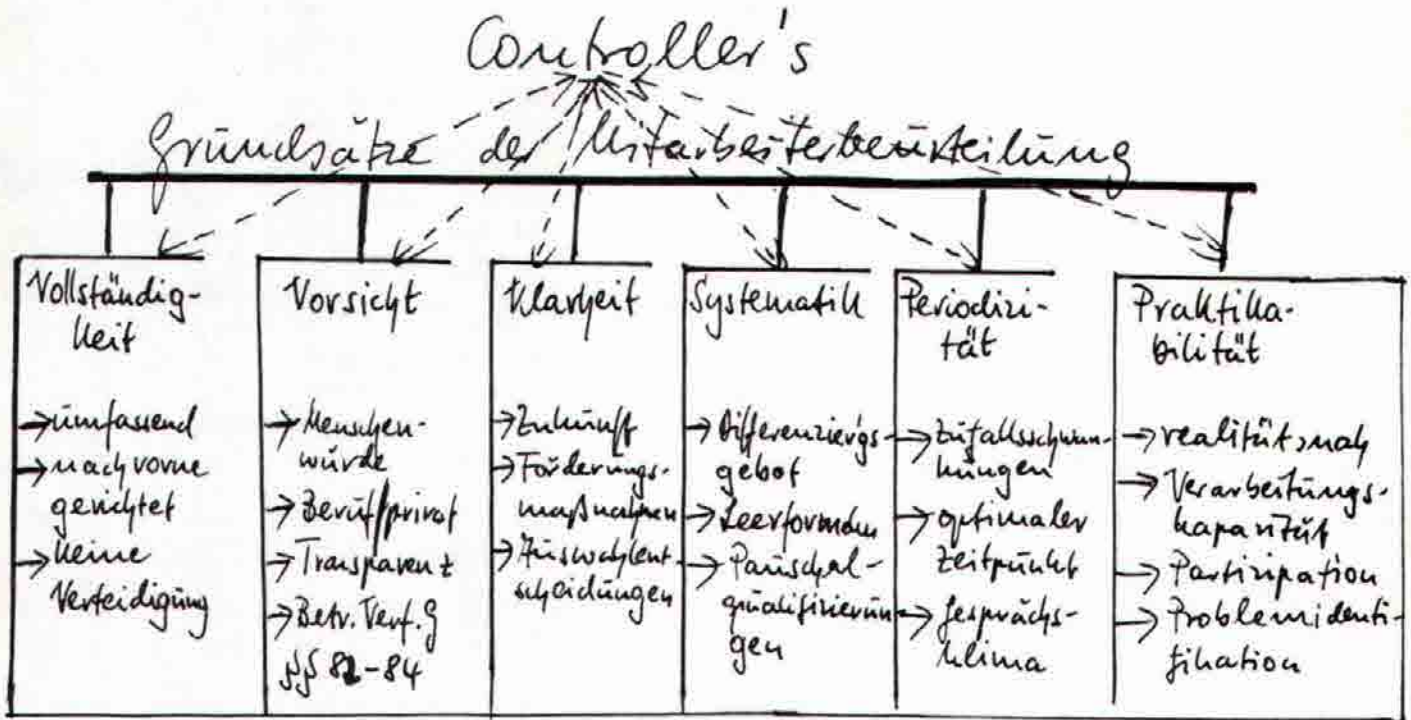 Controller's
Grundsätze der Mitarbeiterbeurteilung
Vollständig-
keit
→ umfassend
→ nach vorne
gerichtet
→ keine
Verteidigung
Vorsicht
→ Menschen-
würde
→ Beruf/privat
→ Transparenz
→ Betr. Verf. G
§§ 82-84
Klarheit
→ Zukunft
→ Förderungs-
maßnahmen
→ Auswahlent-
scheidungen
Systematik
→ Differenzier'gs-
gebot
→ Leerformeln
→ Pauschal-
qualifizierun-
gen
Periodizi-
tät
→ Zufallsschwan-
kungen
→ optimaler
Zeitpunkt
→ Gesprächs-
klima
Praktika-
bilität
→ realitätsnah
→ Verarbeitungs-
kapazität
→ Partizipation
→ Problemidenti-
fikation